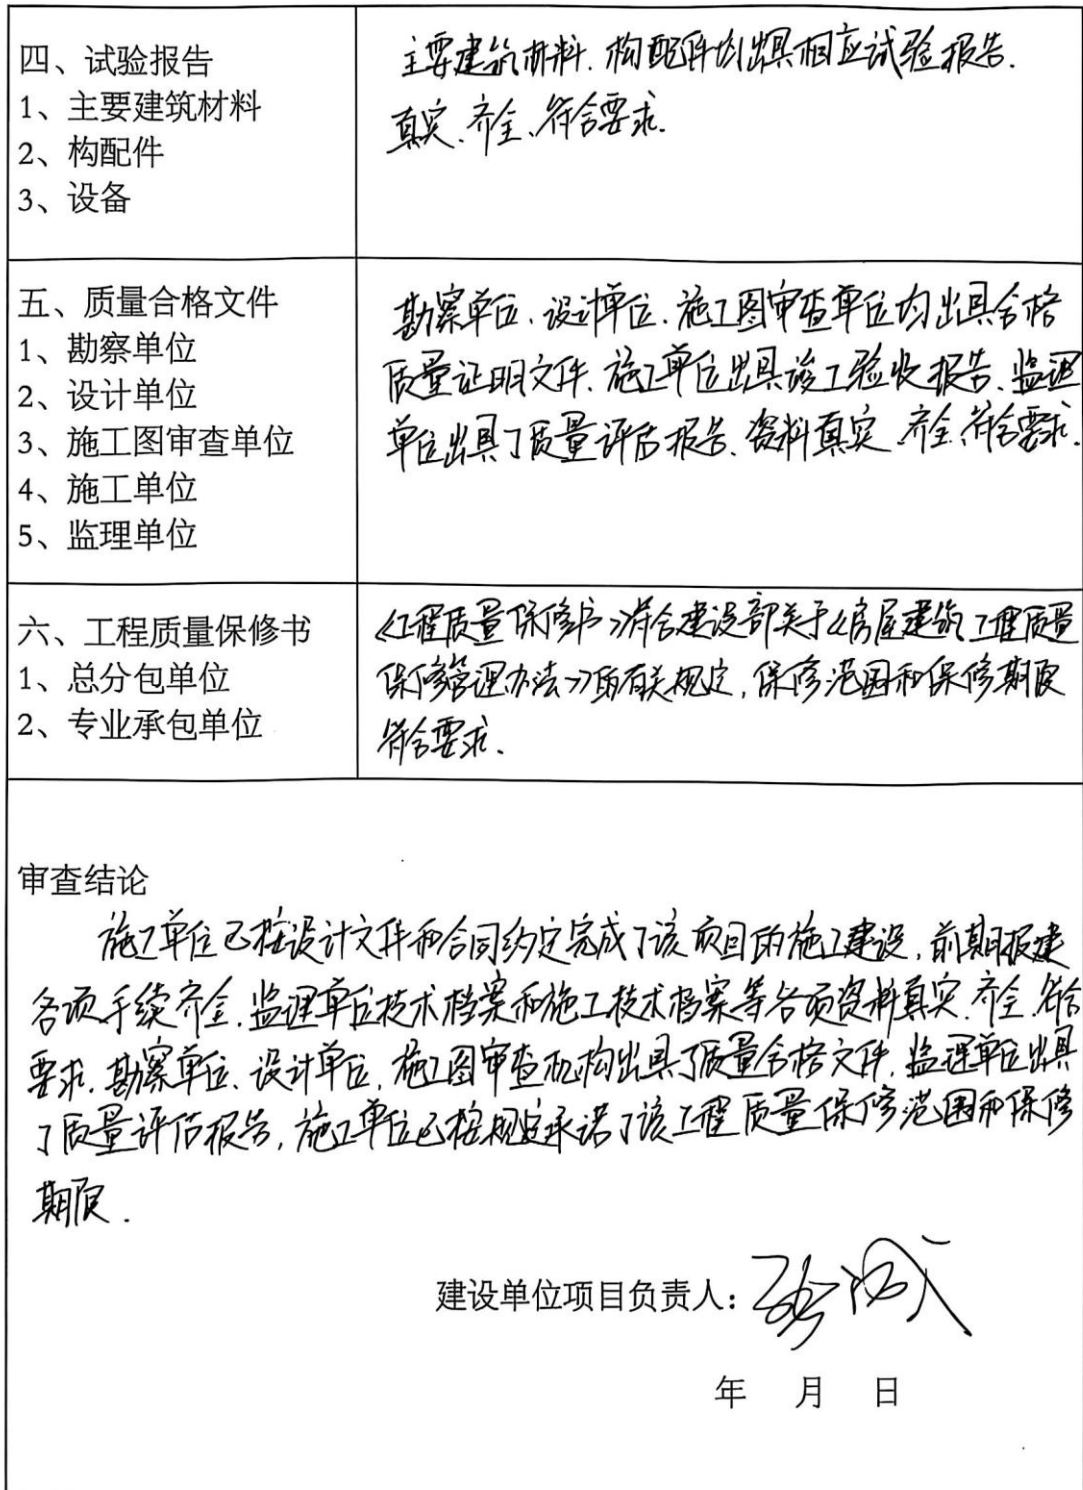 四、试验报告
1、主要建筑材料
2、构配件
3、设备
主要建筑材料、构配件均出具相应试验报告.
真实、齐全、符合要求.
五、质量合格文件
1、勘察单位
2、设计单位
3、施工图审查单位
4、施工单位
5、监理单位
勘察单位、设计单位、施工图审查单位均出具合格
质量证明文件、施工单位出具竣工验收报告、监理
单位出具了质量评估报告、资料真实、齐全、符合要求.
六、工程质量保修书
1、总分包单位
2、专业承包单位
《工程质量保修书》符合建设部关于《房屋建筑工程质量
保修管理办法》的有关规定,保修范围和保修期限
符合要求.
审查结论
施工单位已按设计文件和合同约定完成了该项目的施工建设,前期报建
各项手续齐全.监理单位技术档案和施工技术档案等各项资料真实.齐全.符合
要求.勘察单位、设计单位,施工图审查机构出具了质量合格文件.监理单位出具
了质量评估报告,施工单位已按规定承诺了该工程质量保修范围和保修
期限.
建设单位项目负责人:
年 月 日